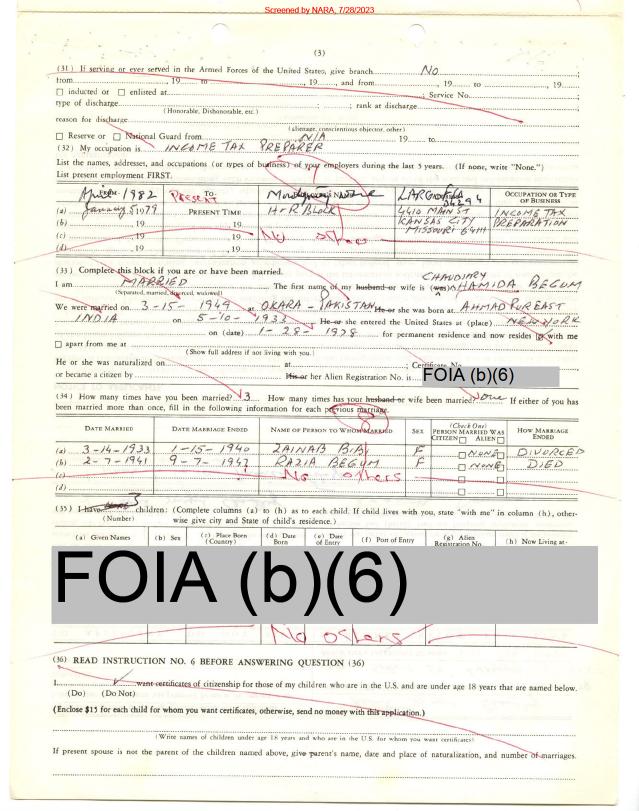 Screened by NARA, 7/28/2023
(3)
(31) If serving or ever served in the Armed Forces of the United States, give branch No
from , 19 to , 19 , and from , 19 to , 19
☐ inducted or ☐ enlisted at ; Service No.
type of discharge ; rank at discharge
(Honorable, Dishonorable, etc.)
reason for discharge
(alienage, conscientious objector, other)
☐ Reserve or ☐ National Guard from N/A 19 to 19
(32) My occupation is INCOME TAX PREPARER
List the names, addresses, and occupations (or types of business) of your employers during the last 5 years. (If none, write "None.")
List present employment FIRST.
April 1982 Present TO- LARGO FLA OCCUPATION OR TYPE OF BUSINESS
(a) January, 1979 PRESENT TIME H&R BLOCK 4410 MAIN ST INCOME TAX
(b) , 19 , 19 KANSAS CITY PREPARATION
(c) , 19 , 19 No others MISSOURI 64111
(d) , 19 , 19
(33) Complete this block if you are or have been married. CHAUDHRY
I am MARRIED The first name of my husband or wife is (was) HAMIDA BEGUM
(Separated, married, divorced, widowed)
We were married on 3-15-1949 at OKARA - PAKISTAN He or she was born at AHMADPUR EAST
INDIA on 5-10-1933 He or she entered the United States at (place) NEW YORK
on (date) 1-28-1978 for permanent residence and now resides ☐ with me
☐ apart from me at
(Show full address if not living with you.)
He or she was naturalized on at Certificate No.
or became a citizen by His or her Alien Registration No. is FOIA (b)(6)
(34) How many times have you been married? 3 How many times has your husband or wife been married? None If either of you has
been married more than once, fill in the following information for each previous marriage.
8
DATE MARRIED DATE MARRIAGE ENDED NAME OF PERSON TO WHOM MARRIED SEX (Check One) PERSON MARRIED WAS CITIZEN ☐ ALIEN ☐ HOW MARRIAGE ENDED
(a) 3-14-1933 1-15-1940 ZAINAB BIBI F ☐ NONE ☐ DIVORCED
(b) 2-7-1941 9-7-1947 RAZIA BEGUM F ☐ NONE ☐ DIED
(c) No others ☐ ☐
(d) ☐ ☐
(35) I have 3 children: (Complete columns (a) to (h) as to each child. If child lives with you, state "with me" in column (h), other-
(Number) wise give city and State of child's residence.)
(a) Given Names (b) Sex (c) Place Born (Country) (d) Date Born (e) Date of Entry (f) Port of Entry (g) Alien Registration No. (h) Now Living at-
FOIA (b)(6)
No others
(36) READ INSTRUCTION NO. 6 BEFORE ANSWERING QUESTION (36)
I want certificates of citizenship for those of my children who are in the U.S. and are under age 18 years that are named below.
(Do) (Do Not)
(Enclose $15 for each child for whom you want certificates, otherwise, send no money with this application.)
(Write names of children under age 18 years and who are in the U.S. for whom you want certificates)
If present spouse is not the parent of the children named above, give parent's name, date and place of naturalization, and number of marriages.